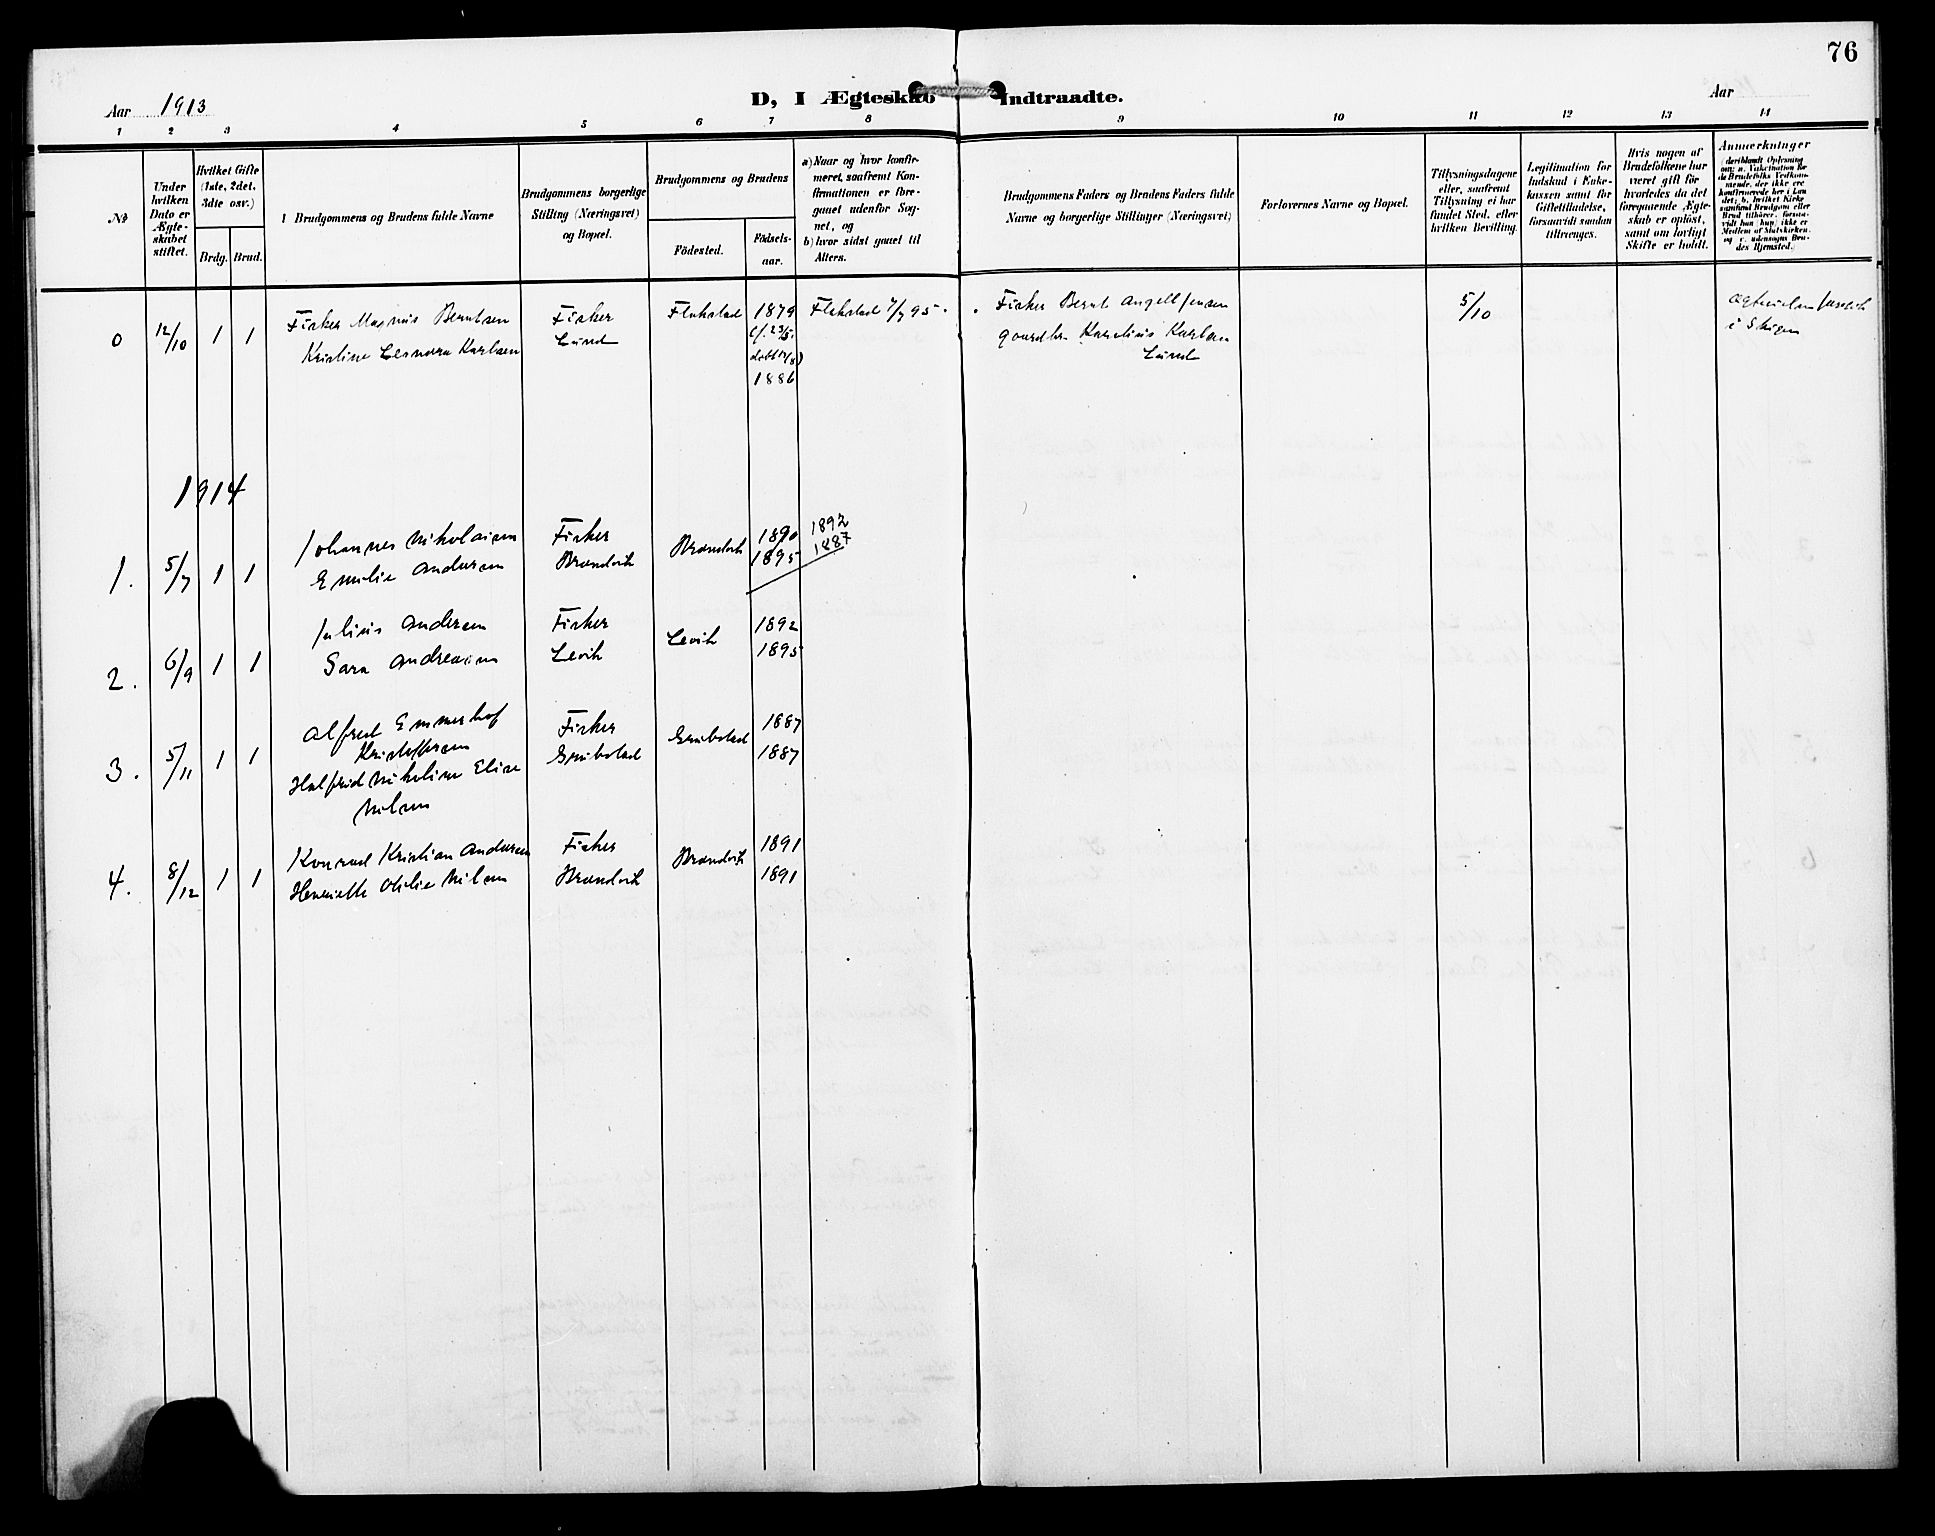 76
Aar 1913
D, I Ægteskab Indtraadte.
Aar
1 2 3 4 5 6 7 8 9 10 11 12 13 14
№
Under hvilken Dato er Ægteskabet stiftet.
Hvilket Gifte (1ste, 2det, 3die osv.)
Brdg. Brud.
Brudgommens og Brudens fulde Navne
Brudgommens borgerlige Stilling (Næringsvei) og Bopæl.
Brudgommens og Brudens
Födested.
Födselsaar.
a) Naar og hvor konfirmeret, saafremt Konfirmationen er foregaaet udenfor Sognet, og
b) hvor sidst gaaet til Alters.
Brudgommens Faders og Brudens Faders fulde Navne og borgerlige Stillinger (Næringsvei)
Forlovernes Navne og Bopæl.
Tillysningsdagene eller, saafremt Tillysning ei har fundet Sted, efter hvilken Bevilling.
Legitimation for Indskud i Enkekassen samt for Giftetilladelse, forsaavidt saadan tiltrænges.
Hvis nogen af Brudefolkene har været gift för hvorledes da det foregaaende Ægteskab er oplöst, samt om lovligt Skifte er holdt.
Anmærkninger
0 12/10 1 1
Fisker Magnus Berntsen
Kristine Leonora Karlsen
Fisker
Lund
Flakstad
1879
1886
Flakstad 7/7 95.
Fisker Bernt Angell Jensen
Karelius Karlsen
Lund
5/10
i
1914
1. 5/7 1 1
Johannes Nikolaisen
Emilie Andersen
Fisker
Brandvik
Brandvik
1890
1895
1892
1887
2. 6/9 1 1
Julius Andersen
Sara Andreasen
Fisker
Levik
Levik
1892
1895
3. 5/11 1 1
Alfred Emmerhof
Kristoffersen
Halfrid Nikoline Elise
Nilsen
Fisker
Grubstad
Grubstad
1887
1887
4. 8/12 1 1
Konrad Kristian Andersen
Henriette Otilie Nilsen
Fisker
Brandvik
Brandvik
1891
1891